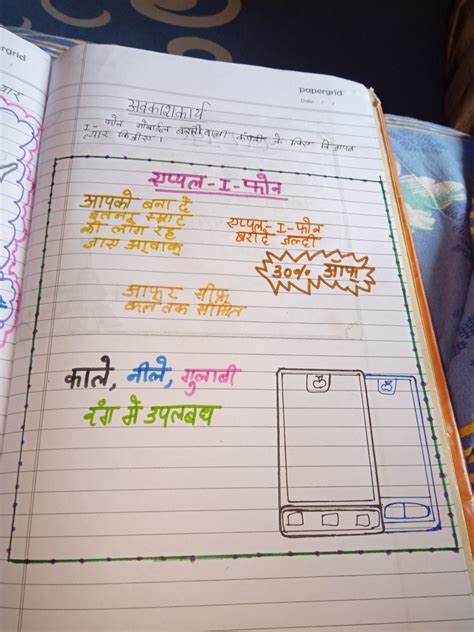 papergrid
Date: / /
ergrid
अवकाशकार्य
I - फोन मोबाईल बनाने वाली कंपनी के लिए विज्ञापन
त्यार किजीए।
एप्पल - I - फोन
आपको बना दे
इतना स्मार्ट
की लोग रह
जाए अवाक
एप्पल - I - फोन
खरीदे जल्दी
30% ऑफ
आफर सीफ्र
कल तक सीमित
काले, नीले, गुलाबी
रंग में उपलबध